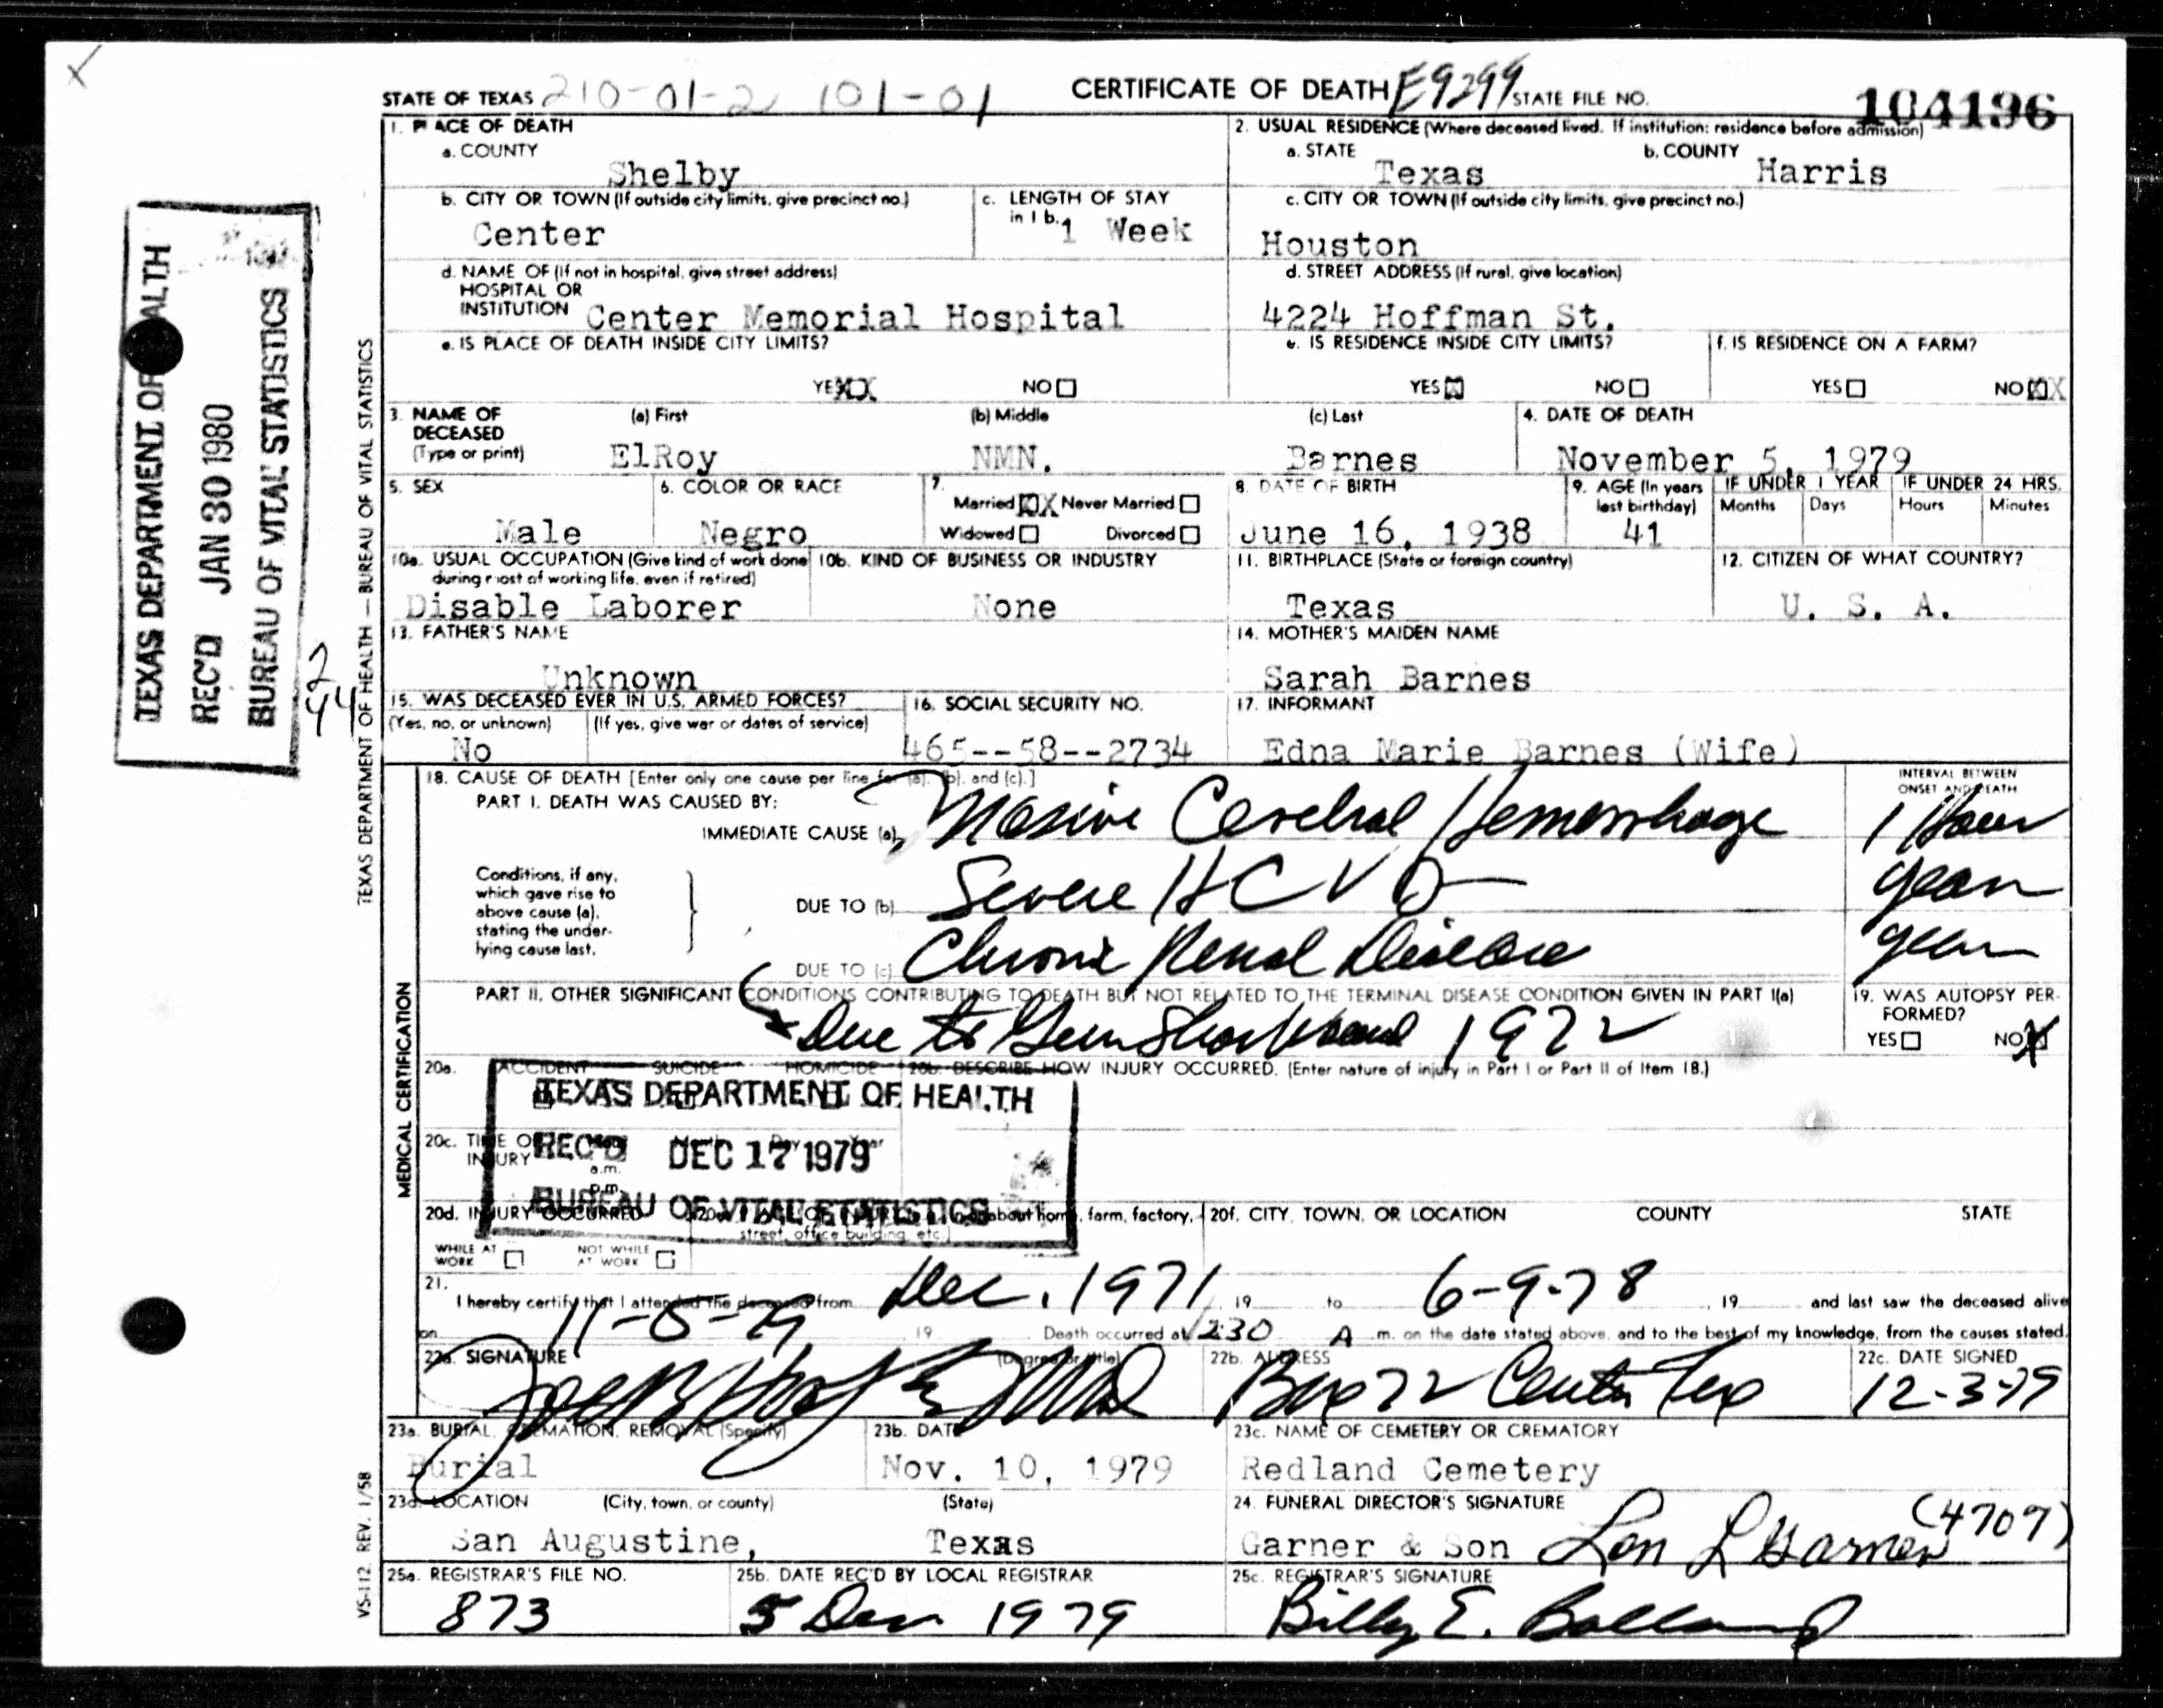 STATE OF TEXAS 210-01-2 101-01 CERTIFICATE OF DEATH E9299 STATE FILE NO. 104196
1. PLACE OF DEATH
a. COUNTY
Shelby
b. CITY OR TOWN (If outside city limits, give precinct no.)
Center
c. LENGTH OF STAY in 1 b.
1 Week
d. NAME OF (If not in hospital, give street address)
HOSPITAL OR
INSTITUTION Center Memorial Hospital
e. IS PLACE OF DEATH INSIDE CITY LIMITS?
YES XX NO
2. USUAL RESIDENCE (Where deceased lived. If institution: residence before admission)
a. STATE b. COUNTY
Texas Harris
c. CITY OR TOWN (If outside city limits, give precinct no.)
Houston
d. STREET ADDRESS (If rural, give location)
4224 Hoffman St.
e. IS RESIDENCE INSIDE CITY LIMITS?
YES X NO
f. IS RESIDENCE ON A FARM?
YES NO XX
3. NAME OF DECEASED (Type or print)
(a) First (b) Middle (c) Last
ElRoy NMN. Barnes
4. DATE OF DEATH
November 5, 1979
5. SEX
Male
6. COLOR OR RACE
Negro
7.
Married XX Never Married
Widowed Divorced
8. DATE OF BIRTH
June 16, 1938
9. AGE (In years last birthday)
41
IF UNDER 1 YEAR IF UNDER 24 HRS.
Months Days Hours Minutes
10a. USUAL OCCUPATION (Give kind of work done during most of working life, even if retired)
Disable Laborer
10b. KIND OF BUSINESS OR INDUSTRY
None
11. BIRTHPLACE (State or foreign country)
Texas
12. CITIZEN OF WHAT COUNTRY?
U. S. A.
13. FATHER'S NAME
Unknown
14. MOTHER'S MAIDEN NAME
Sarah Barnes
15. WAS DECEASED EVER IN U.S. ARMED FORCES?
(Yes, no, or unknown) (If yes, give war or dates of service)
No
16. SOCIAL SECURITY NO.
465--58--2734
17. INFORMANT
Edna Marie Barnes (Wife)
18. CAUSE OF DEATH [Enter only one cause per line for (a), (b), and (c).]
INTERVAL BETWEEN ONSET AND DEATH
PART I. DEATH WAS CAUSED BY:
IMMEDIATE CAUSE (a) Massive Cerebral Hemorrhage 1 Hour
Conditions, if any, which gave rise to above cause (a), stating the underlying cause last.
DUE TO (b) Severe HCVD years
DUE TO (c) Chronic Renal Disease years
PART II. OTHER SIGNIFICANT CONDITIONS CONTRIBUTING TO DEATH BUT NOT RELATED TO THE TERMINAL DISEASE CONDITION GIVEN IN PART I(a)
Due to Gun Shot Wound 1972
19. WAS AUTOPSY PERFORMED?
YES NO X
20a. ACCIDENT SUICIDE HOMICIDE
20b. DESCRIBE HOW INJURY OCCURRED. (Enter nature of injury in Part I or Part II of Item 18.)
TEXAS DEPARTMENT OF HEALTH
REC'D DEC 17 1979
BUREAU OF VITAL STATISTICS
20c. TIME OF INJURY
a.m.
p.m.
20d. INJURY OCCURRED
WHILE AT WORK NOT WHILE AT WORK
about home, farm, factory, street, office building, etc.)
20f. CITY, TOWN, OR LOCATION COUNTY STATE
21.
I hereby certify that I attended the deceased from Dec. 1971, 19 to 6-9-78, 19 and last saw the deceased alive
on 11-5-79 19 Death occurred at 1230 A m. on the date stated above, and to the best of my knowledge, from the causes stated.
22a. SIGNATURE (Degree or title)
22b. ADDRESS
Box 72 Center Tex
22c. DATE SIGNED
12-3-79
23a. BURIAL, CREMATION, REMOVAL (Specify)
Burial
23b. DATE
Nov. 10, 1979
23c. NAME OF CEMETERY OR CREMATORY
Redland Cemetery
23d. LOCATION (City, town, or county) (State)
San Augustine, Texas
24. FUNERAL DIRECTOR'S SIGNATURE
Garner & Son Lon L Garner (4707)
25a. REGISTRAR'S FILE NO.
873
25b. DATE REC'D BY LOCAL REGISTRAR
5 Dec 1979
25c. REGISTRAR'S SIGNATURE
Billy E.
MEDICAL CERTIFICATION
TEXAS DEPARTMENT OF HEALTH — BUREAU OF VITAL STATISTICS
VS-112 REV. 1/58
TEXAS DEPARTMENT OF HEALTH
REC'D JAN 30 1980
BUREAU OF VITAL STATISTICS
2
44